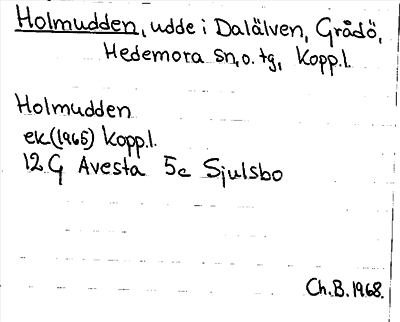 Holmudden, udde i Dalälven, Grådö,
Hedemora sn, o. tg, Kopp.l.
Holmudden
ek (1965) Kopp.l.
12 G Avesta 5c Sjulsbo
Ch.B. 1968.